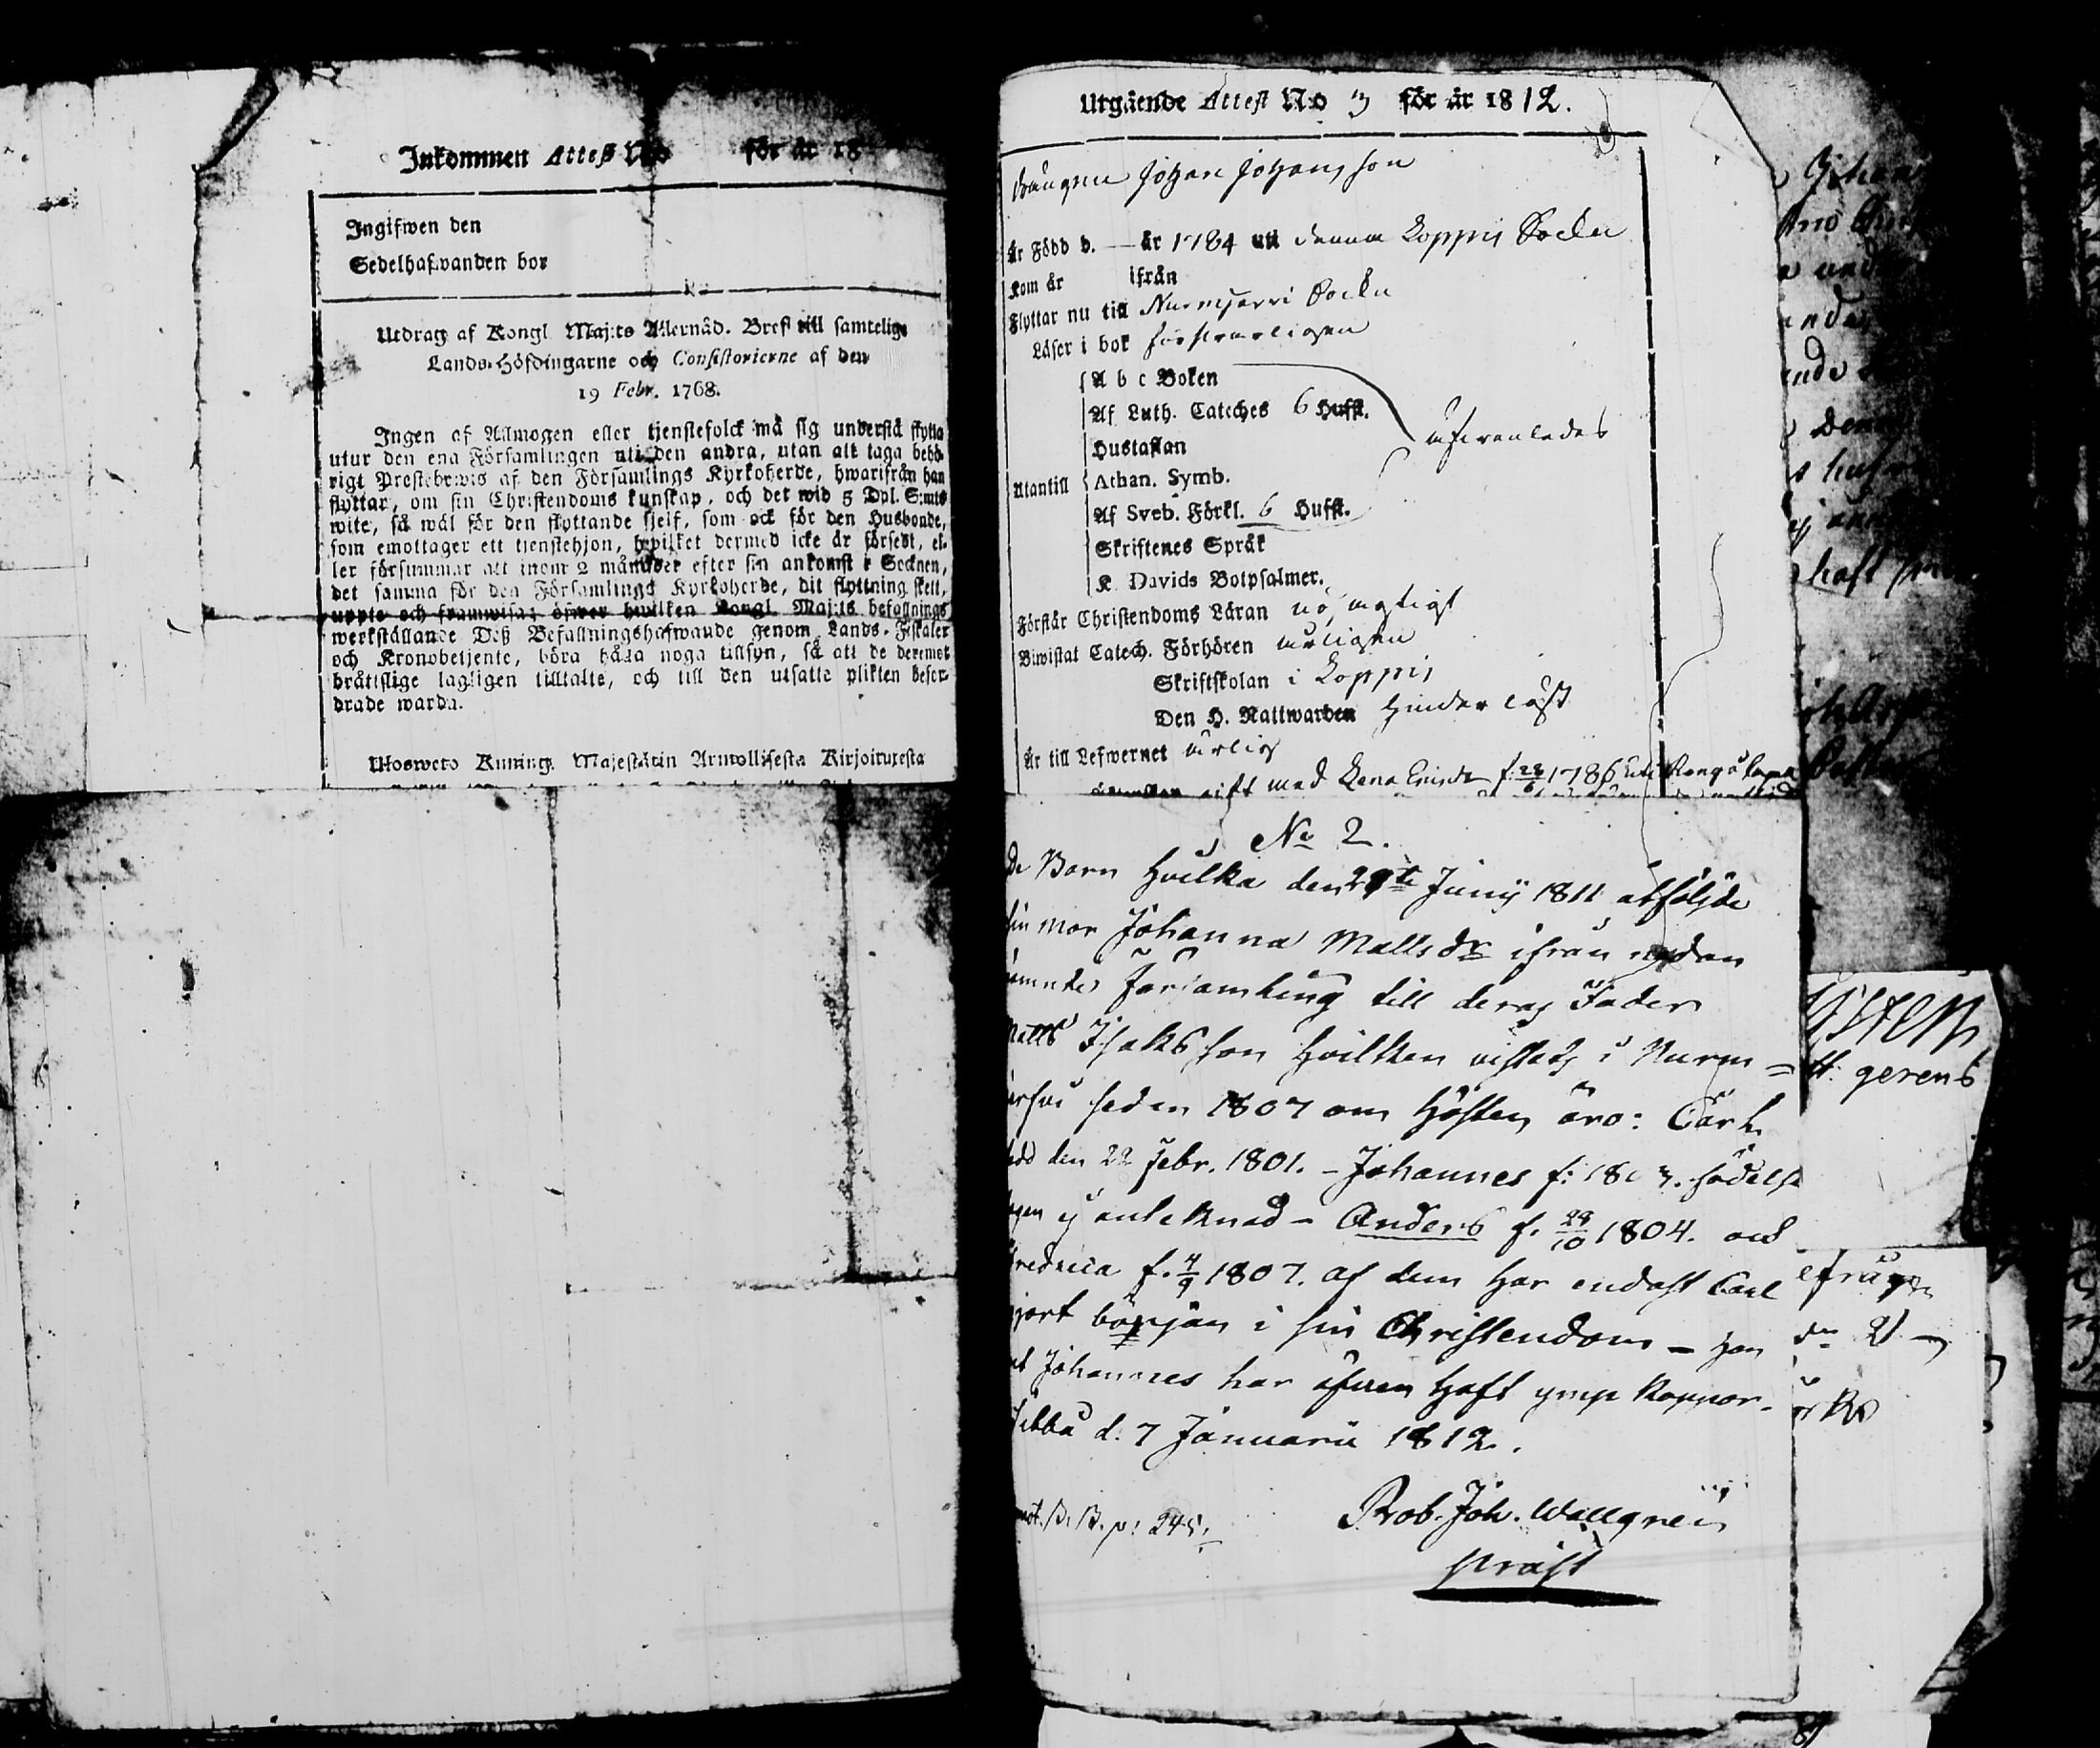 Inkommen Attest No för år 18
Ingifwen den
Sedelhafwanden bor
Utdrag af Kongl. Maj:ts Allernåd. Bref till samtelige
Lands-Höfdingarne och Consistorierne af den
19 Febr. 1768.
Ingen af Allmogen eller tjenstefolck må sig understå flytta
utur den ena Församlingen uti den andra, utan att taga behö-
rigt Prestebewis af den Församlings Kyrkoherde, hwarifrån han
flyttar, om sin Christendoms kunskap, och det wid 5 Dal. S:mts
wite, så wäl för den flyttande sjelf, som ock för den Husbonde,
som emottager ett tjenstehjon, hwilket dermed icke är försedt, el-
ler försummar att inom 2 månader efter sin ankomst i Socknen,
det samma för den Församlings Kyrkoherde, dit flyttning skett,
uppte och framwisa; öfwer hwilken Kongl. Maj:ts befallnings
werkställande Deß Befallningshafwande genom Lands-Fiskaler
och Kronobetjente, böra hålla noga tillsyn, så att de deremot
bråttslige lagligen tilltalte, och till den utsatte plikten befor-
drade warda.
Ulosweto Kuning. Majestätin Armollisesta Kirjoituxesta
Utgående Attest No 3 för år 1812.
Drängen Johan Johansson
Är Född d. — år 1784 uti denna Loppis Sockn
Kom år ifrån
Flyttar nu till Nurmijervi Sockn
Läser i bok försvarligen
A b c Boken
Af Luth. Cateches 6 Hufst.
Hustaflan
Utantill Athan. Symb.
Af Sveb. Förkl. 6 Hufst.
Skriftenes Språk
K. Davids Botpsalmer.
äfvenledes
Förstår Christendoms Läran nöjagtigt
Biwistat Catech. Förhören årligen
Skriftskolan i Loppis
Den H. Nattwarden hinderlöst
Är till Lefwernet ärlig
gift med Lena 1786
No 2.
De Barn hvilka den 29de Junij 1811 åtföljde
sin mor Johanna Matts dr ifrån nedan
nämnde Församling till deras Fader
Matts Isaksson hvilken vistats i Nurm=
jersvi sedan 1807 om hösten äro: Carl
född den 22 Febr. 1801. - Johannes f: 1803. födelse
dagen ej antecknad - Anders f. 29/10 1804. och
Fredrica f. 4/9 1807. Af dem har endast Carl
gjort början i sin Christendom - han
och Johannes har äfven haft ymp koppor.
d. 7 Januarii 1812.
B. B. p: 245.
Rob. Joh. Wallgren
Präst
tt. gerens